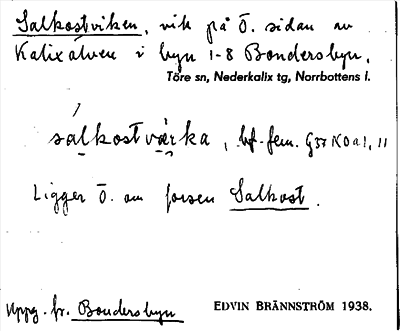 Salkostviken, vik på Ö. sidan av
Kalixälven i byn 1-8 Bondersbyn,
Töre sn, Nederkalix tg, Norrbottens l.
sálkostvæ̱rka, bf. fem.
Ligger Ö. om forsen Salkost.
Uppg. fr. Bondersbyn
EDVIN BRÄNNSTRÖM 1938.